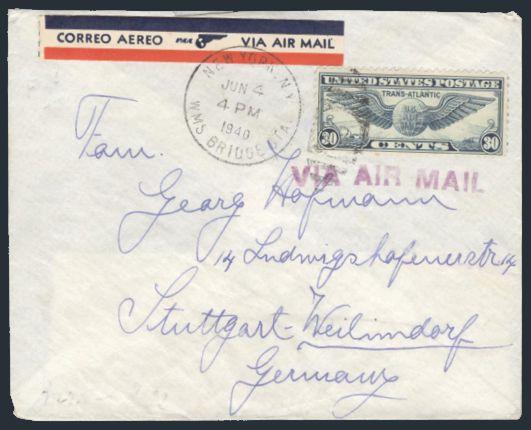 CORREO AEREO PAA VIA AIR MAIL
NEW YORK, N.Y.
JUN 4
4 PM
1940
WMS BRIDGE STA.
UNITED STATES POSTAGE
TRANS-ATLANTIC
30 CENTS 30
VIA AIR MAIL
Fam.
Georg Hofmann
14 Ludwigshafenerstr 14
Stuttgart-Weilimdorf
Germany